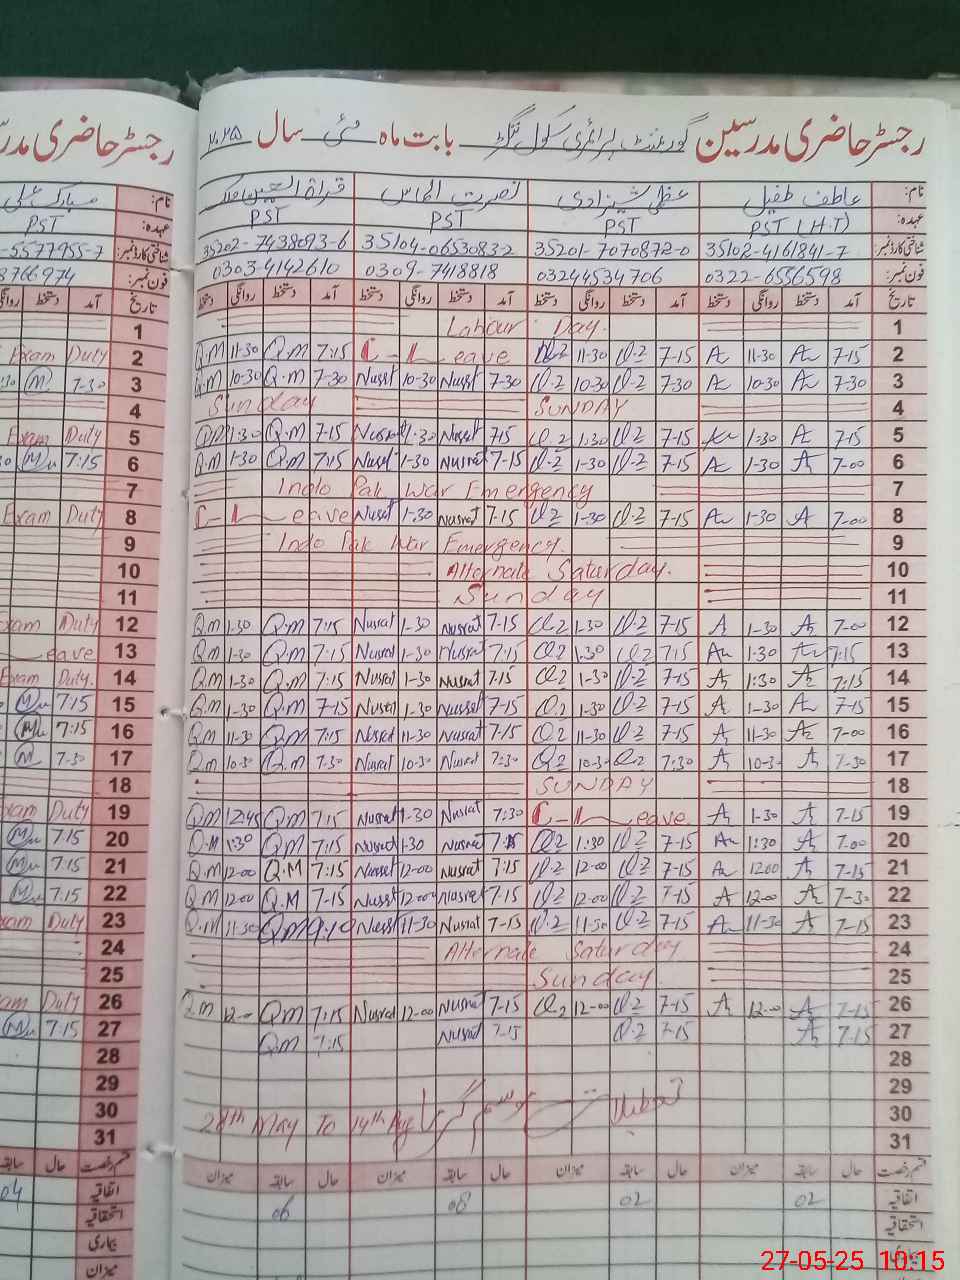 رجسٹر حاضری مدرسین گورنمنٹ پرائمری سکول بابت ماہ مئی سال ۲۰۲۵
رجسٹر حاضری مدر
نام: عاطف طفیل عظمیٰ شہزادی نصرت الماس قراۃ العین نام: مبارک علی
عہدہ: PST (H.T) PST PST PST عہدہ: PST
شناختی کارڈ نمبر: 35102-4161841-7 35201-7070872-0 35104-0653083-2 35202-7438093-6 شناختی کارڈ نمبر: -5577955-7
فون نمبر: 0322-6556598 03244534706 0309-7418818 0303-4142610 فون نمبر: 8766974
تاریخ آمد دستخط روانگی دستخط آمد دستخط روانگی دستخط آمد دستخط روانگی دستخط آمد دستخط روانگی دستخط تاریخ آمد دستخط روانگی
1 Labour Day. 1
Exam Duty 2 Q.M 11-30 Q.M 7:15 C-Leave 11-30 7-15 11-30 7-15 2
7-30 3 Q.M 10-30 Q.M 7-30 Nusrat 10-30 Nusrat 7-30 10-30 7-30 10-30 7-30 3
4 Sunday SUNDAY 4
Exam Duty 5 1:30 Q.M 7-15 Nusrat 1-30 Nusrat 715 1:30 7-15 1:30 7-15 5
7:15 6 Q.M 1-30 Q.M 7:15 Nusrat 1-30 Nusrat 7-15 1-30 7-15 1-30 7-00 6
7 Indo Pak War Emergency 7
Exam Duty 8 C-Leave Nusrat 1-30 Nusrat 7-15 1-30 7-15 1-30 7-00 8
9 Indo Pak War Emergency. 9
10 Alternate Saturday. 10
11 Sunday 11
Exam Duty 12 Q.M 1-30 Q.M 7:15 Nusrat 1-30 Nusrat 7-15 1-30 7-15 1-30 7-00 12
eave 13 Q.M 1-30 Q.M 7:15 Nusrat 1-30 Nusrat 7:15 1-30 7:15 1-30 7:15 13
Exam Duty. 14 Q.M 1-30 Q.M 7:15 Nusrat 1-30 Nusrat 7:15 1-30 7-15 1:30 7:15 14
7:15 15 Q.M 1-30 Q.M 7-15 Nusrat 1-30 Nusrat 7-15 1-30 7-15 1-30 7-15 15
7:15 16 Q.M 11-30 Q.M 7:15 Nusrat 11-30 Nusrat 7-15 11-30 7-15 11-30 7-00 16
7-30 17 Q.M 10-30 Q.M 7:30 Nusrat 10-30 Nusrat 7:30 10-3- 7:30 10-3- 7-30 17
18 SUNDAY 18
Exam Duty 19 Q.M 12:45 Q.M 7:15 Nusrat 1-30 Nusrat 7:30 C-Leave 1-30 7-15 19
7.15 20 Q.M 1:30 Q.M 7:15 Nusrat 1-30 Nusrat 7:15 1:30 7-15 1:30 7-00 20
7.15 21 Q.M 12-00 Q.M 7:15 Nusrat 12-00 Nusrat 7:15 12-00 7-15 1200 7-15 21
7.15 22 Q.M 12-00 Q.M 7-15 Nusrat 12-00 Nusrat 7-15 12-00 7-15 12-00 7-30 22
Exam Duty 23 Q.M 11-30 Q.M Nusrat 11-30 Nusrat 7-15 11-30 7-15 11-30 7-15 23
24 Alternate Saturday 24
25 Sunday. 25
Exam Duty 26 Q.M 12-- Q.M 7:15 Nusrat 12-00 Nusrat 7-15 12-00 7-15 12-00 7-15 26
7:15 27 Q.M 7:15 Nusrat 7-15 7-15 7-15 27
28 28
29 29
30 28th May To 14th Aug 30
31 31
قسم رخصت حال سابقہ میزان حال سابقہ میزان حال سابقہ میزان حال سابقہ میزان قسم رخصت حال سابقہ
اتفاقیہ 02 02 08 06 اتفاقیہ 04
استحقاقیہ استحقاقیہ
بیماری بیماری
میزان
27-05-25 10:15